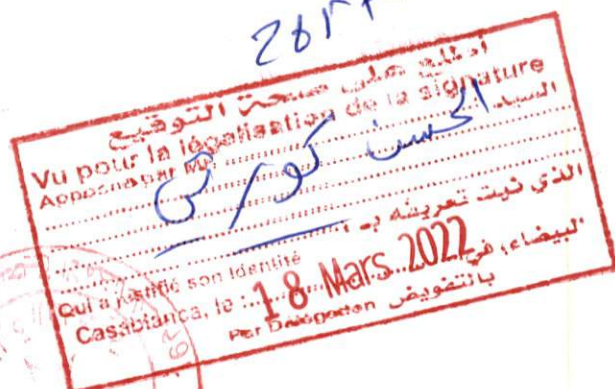 اطلع على صحة التوقيع
Vu pour la légalisation de la signature
Apposée par Mr. السيد
الحسن
الذي ثبت تعريفه ب :
Qui a justifié son identité
Casablanca, le : 18 Mars 2022 البيضاء، في
Par Délégation بالتفويض